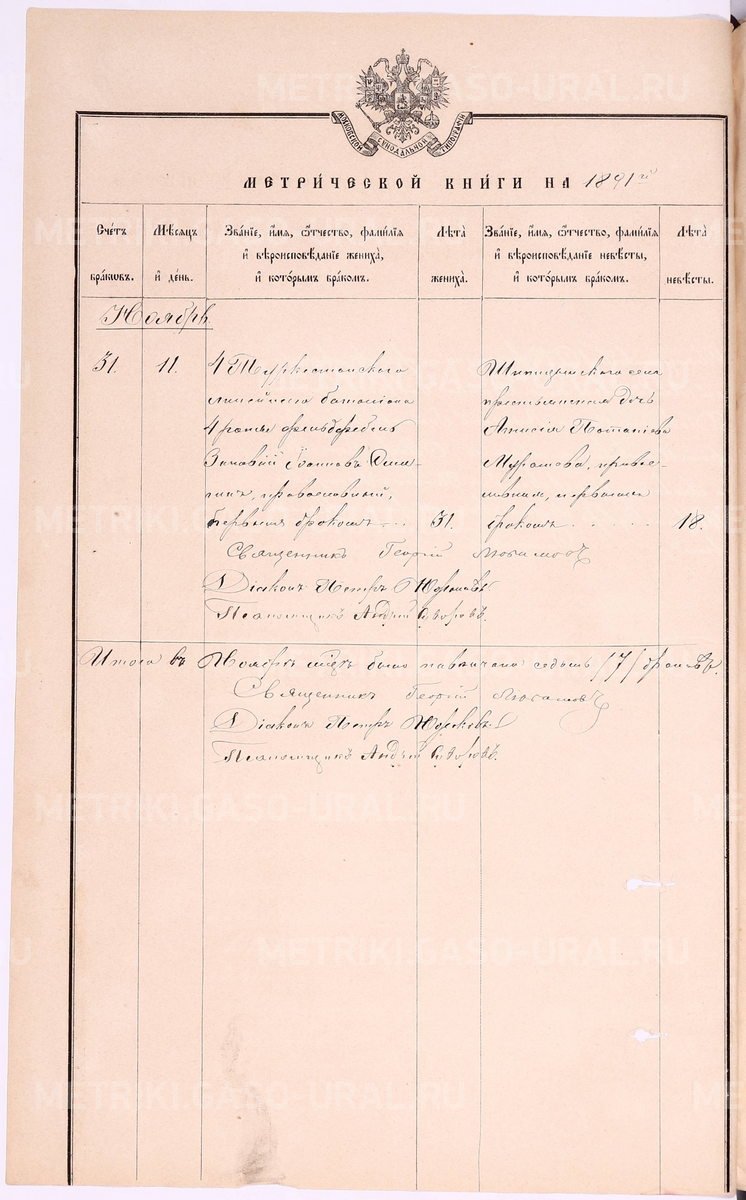 МОСКОВСКОЙ СѴНОДАЛЬНОЙ ТИПОГРАФІИ
МЕТРИ́ЧЕСКОЙ КНИ́ГИ НА 1891й
Сче́тъ бра́кѡвъ.
Мѣ́сѧцъ и҆ де́нь.
Зва́нїе, и҆́мѧ, ѻ҆́тчество, фамилїѧ и҆ вѣроисповѣ́данїе жениха̀, и҆ кото́рымъ бра́комъ.
Лѣта̀ жениха̀.
Зва́нїе, и҆́мѧ, ѻ҆́тчество, фамилїѧ и҆ вѣроисповѣ́данїе невѣ́сты, и҆ кото́рымъ бра́комъ.
Лѣта̀ невѣ́сты.
Ноябрь
31.
11.
4 Туркестанского
линейнаго баталіона
4 роты фельдфебель
Іоанновъ
православный,
первымъ бракомъ
31.
села
крестьянская дочь
Анисія Потапіева
православная, первымъ
бракомъ
18.
Священникъ Георгій Любимовъ
Діаконъ Петръ
Псаломщикъ Андрей
Итого въ Ноябрѣ мцѣ было повѣнчано седьмь /7/ браковъ.
Священникъ Георгій Любимовъ
Діаконъ Петръ
Псаломщикъ Андрей
METRIKI.GASO-URAL.RU